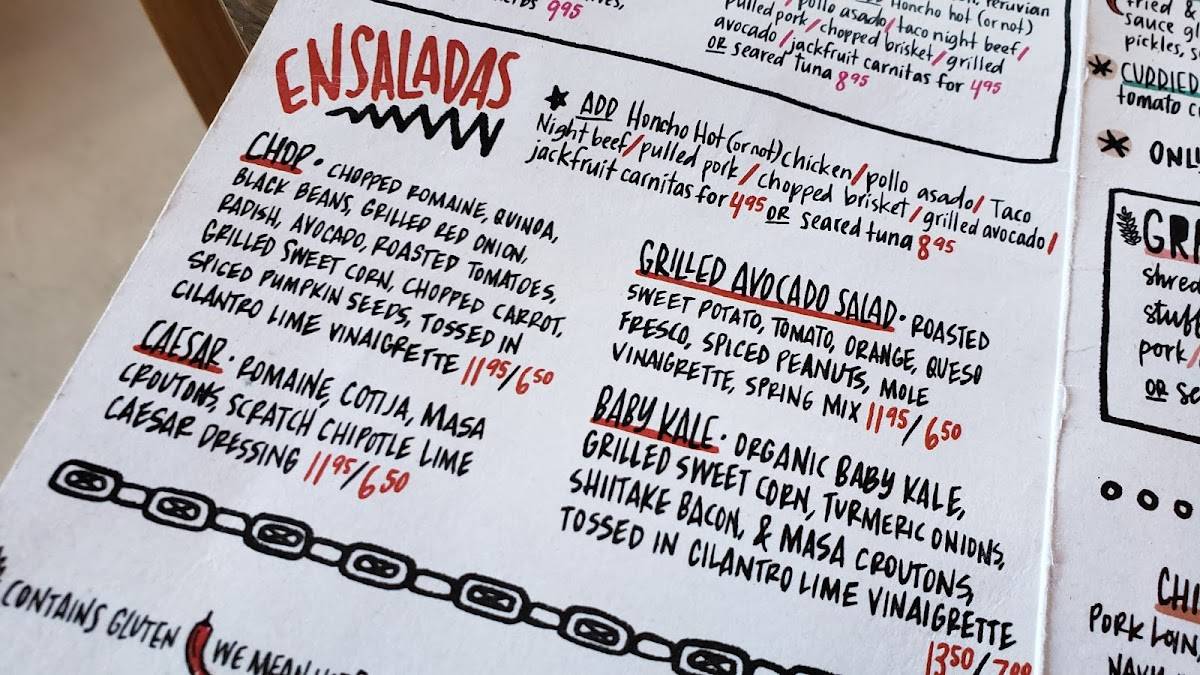 995
Peruvian
pollo asado/taco night beef/
Honcho hot (or not)
pulled pork/chopped brisket/grilled
avocado/jackfruit carnitas for 495
OR seared tuna 895
ENSALADAS
* ADD Honcho Hot (or not) chicken/pollo asado/Taco
Night beef/pulled pork/chopped brisket/grilled avocado/
jackfruit carnitas for 495 OR seared tuna 895
CHOP • CHOPPED ROMAINE, QUINOA,
BLACK BEANS, GRILLED RED ONION,
RADISH, AVOCADO, ROASTED TOMATOES,
GRILLED SWEET CORN, CHOPPED CARROT,
SPICED PUMPKIN SEEDS, TOSSED IN
CILANTRO LIME VINAIGRETTE 1195/650
CAESAR • ROMAINE, COTIJA, MASA
CROUTONS, SCRATCH CHIPOTLE LIME
CAESAR DRESSING 1195/650
GRILLED AVOCADO SALAD • ROASTED
SWEET POTATO, TOMATO, ORANGE, QUESO
FRESCO, SPICED PEANUTS, MOLE
VINAIGRETTE, SPRING MIX 1195/650
BABY KALE • ORGANIC BABY KALE,
GRILLED SWEET CORN, TURMERIC ONIONS,
SHIITAKE BACON, & MASA CROUTONS,
TOSSED IN CILANTRO LIME VINAIGRETTE
1350/700
CONTAINS GLUTEN
WE MEAN
fried &
sauce
pickles,
* CURRIED
tomato
* ONLY
GRI
shred
stuff
pork/
OR
CHI
PORK LOIN,